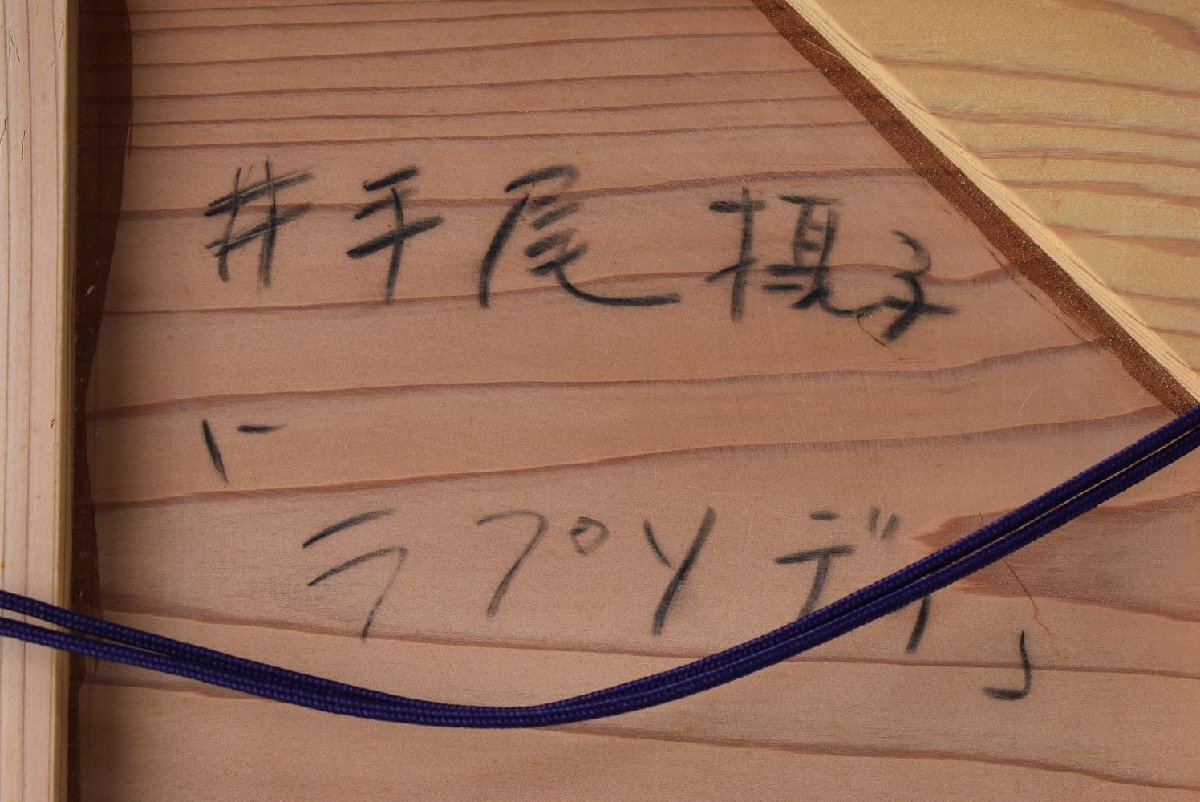 井手尾摂子
「ラプソディ」